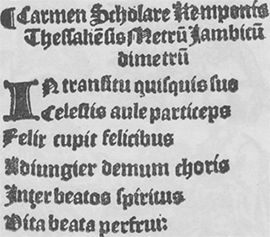 ¶Carmen Scholare Remponis
Thessaliēsis Metrū Jambicū
dimetrū
IN transitu quisquis suo
Celestis aule particeps
Felix cupit felicibus
Adiungier demum choris
Inter beatos spiritus
Vita beata perfrui: